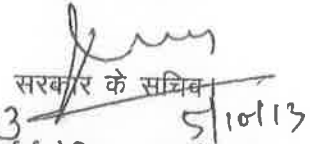 सरकार के सचिव
5/10/13